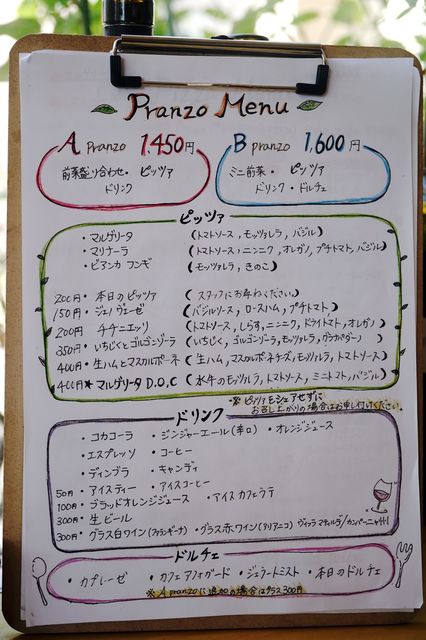 Pranzo Menu
A Pranzo 1,450円
前菜盛り合わせ・ピッツァ
ドリンク
B pranzo 1,600円
ミニ前菜・ピッツァ
ドリンク・ドルチェ
ピッツァ
・マルゲリータ (トマトソース, モッツァレラ, バジル)
・マリナーラ (トマトソース, ニンニク, オレガノ, プチトマト, バジル)
・ビアンカ フンギ (モッツァレラ, きのこ)
200円・本日のピッツァ (スタッフにお尋ねください。)
150円・ジェノヴェーゼ (バジルソース, ロースハム, プチトマト)
200円 チチニエッリ (トマトソース, しらす, ニンニク, ドライトマト, オレガノ)
350円・いちじくとゴルゴンゾーラ (いちじく, ゴルゴンゾーラ, モッツァレラ, グラナパダーノ)
400円・生ハムとマスカルポーネ (生ハム, マスカルポーネチーズ, モッツァレラ, トマトソース)
400円★マルゲリータ D.O.C (水牛のモッツァレラ, トマトソース, ミニトマト, バジル)
※ピッツァをシェアせずに
お召し上がりの場合はお申し付けください。
ドリンク
・コカコーラ ・ジンジャーエール(辛口) ・オレンジジュース
・エスプレッソ ・コーヒー
・ディンブラ ・キャンディ
50円・アイスティー ・アイスコーヒー
100円・ブラッドオレンジジュース ・アイスカフェラテ
300円・生ビール
300円・グラス白ワイン(ファランギーナ) ・グラス赤ワイン(アリアニコ) ヴィッラ マティルデ/カンパーニャ州
ドルチェ
・カプレーゼ ・カフェアフォガード ・ジェラートミスト ・本日のドルチェ
※A pranzoに追加の場合はプラス300円